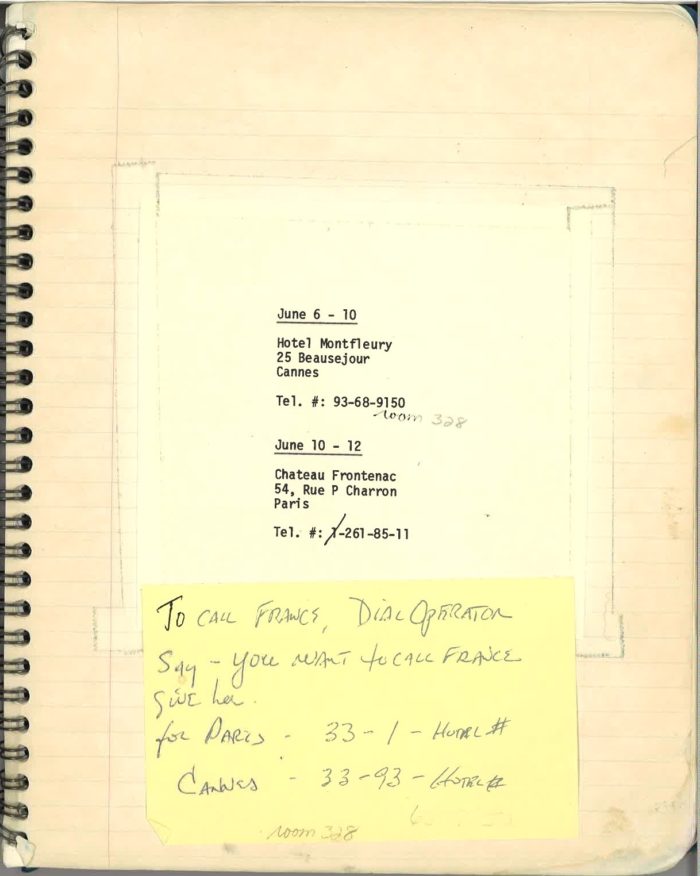 June 6 - 10
Hotel Montfleury
25 Beausejour
Cannes
Tel. #: 93-68-9150
room 328
June 10 - 12
Chateau Frontenac
54, Rue P Charron
Paris
Tel. #: 1-261-85-11
To CALL FRANCE, DIAL OPERATOR
SAY - YOU WANT to CALL FRANCE
GIVE her.
for PARIS - 33-1 - HOTEL #
CANNES - 33-93 - HOTEL #
room 328